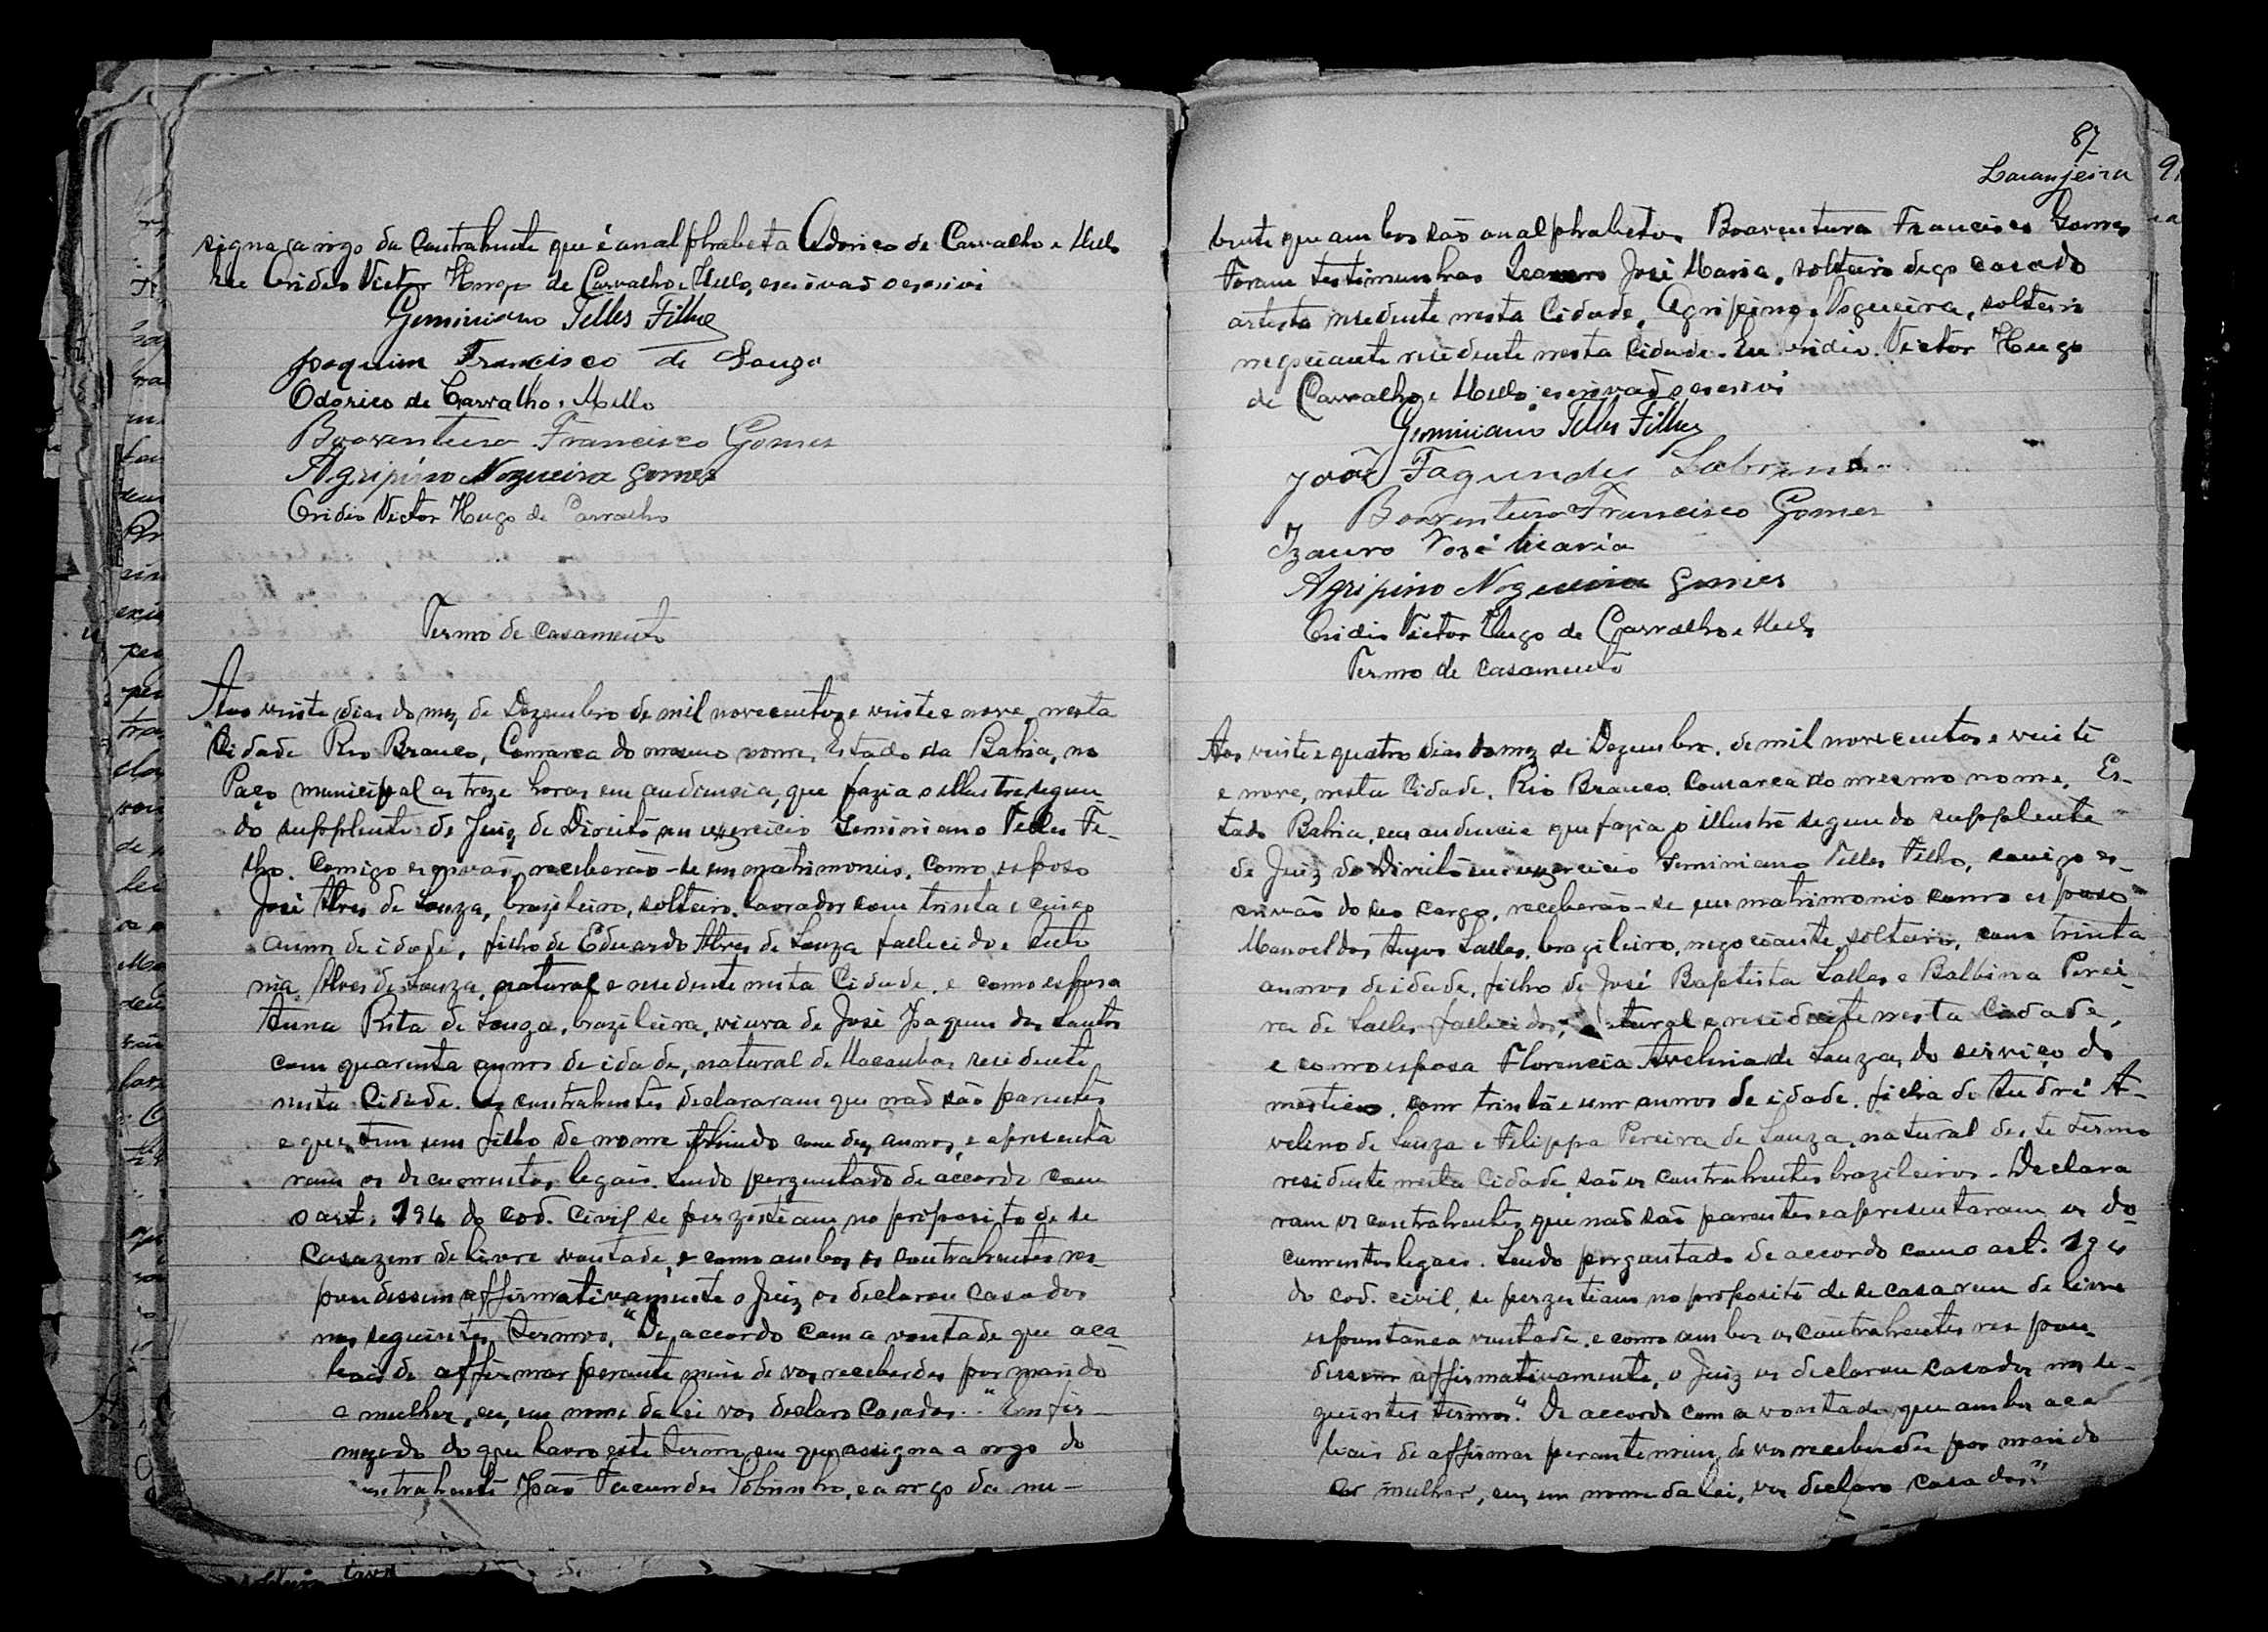 signa a rogo da contrahente que é analphabeta Odorico de Carvalho e Mello
Eu Enidio Victor Hugo de Carvalho e Mello, escrivão o escrivi
Geminiano Telles Filho
Joaquim Francisco de Souza
Odorico de Carvalho e Mello
Boaventura Francisco Gomes
Agripino Nogueira Gomes
Victor Hugo de Carvalho
Termo de casamento
Aos vinte dias do mez de Dezembro de mil novecentos e vinte e nove, nesta
Cidade Rio Branco, Comarca do mesmo nome, Estado da Bahia, no
Paço municipal as treze horas em audiencia, que fazia o illustre segun-
do supplente de Juiz de Direito em exercicio Geminiano Telles Fi-
lho. Comigo escrivão, receberão-se em matrimonio, como esposo
José Alves de Souza, brazileiro, solteiro, lavrador com trinta e cinco
annos de idade, filho de Eduardo Alves de Souza fallecido e
nia Alves de Souza, natural e residente nesta Cidade, e como esposa
Anna Rita de Souza, brazileira, viuva de José Joaquim dos Santos
com quarenta annos de idade, natural de Macaubas residente
nesta Cidade. Os contrahentes declararam que não são parentes
e que tem um filho de nome com dez annos, e apresenta
ram os documentos legais. Sendo perguntado de accordo com
o art. 194 do cod. Civil se perzistiam no proposito de se
casarem de livre vontade, e como ambos os contrahentes res-
pondessem affirmativamente o Juiz os declarou casados
nos seguintes termos. "De accordo com a vontade que aca
bais de affirmar perante mim de vos receberdes por marido
e mulher, eu, em nome da lei vos declaro casados." Em fir
mezado do que lavro este termo em que assigna a rogo do
contrahente João Facundes Sobrinho, e a rogo da nu-
87
Laranjeira
bente que ambos são analphabetos Boaventura Francisco Gomes
Foram testimunhas José Maria, solteiro digo casado
artista residente nesta Cidade, Agripino Nogueira, solteiro
negociante residente nesta Cidade. Eu Enidio Victor Hugo
de Carvalho e Mello escrivão o escrivi
Geminiano Telles Filho
João Fagundes Sobrinho
Boaventura Francisco Gomes
Izauro José Maria
Agripino Nogueira Gomes
Enidio Victor Hugo de Carvalho e Mello
Termo de casamento
Aos vinte e quatro dias do mez de Dezembro, de mil novecentos e vinte
e nove, nesta Cidade, Rio Branco Comarca do mesmo nome, Es-
tado Bahia, em audiencia que fazia o illustre segundo supplente
de Juiz de Direito em exercicio Geminiano Telles Filho, comigo es-
crivão do seo cargo, receberão-se em matrimonio como esposo
Manoel dos Anjos Salles, brazileiro, negociante, solteiro, com trinta
annos de idade, filho de José Baptista Salles e Balbina Perei-
ra de Salles fallecidos, natural e residente nesta Cidade,
e como esposa Florencia Avelina de Souza, do serviço do
mestico, com trinta e um annos de idade, filha de André A-
velino de Souza e Felippa Pereira de Souza, natural deste termo
residente nesta Cidade, são os contrahentes brazileiros. Declara
ram os contrahentes que não são parentes e apresentaram os do-
cumentos legaes. Sendo perguntado de accordo com o art. 194
do cod. civil, se perzistiam no proposito de se casarem de livre
espontanea vontade, e como ambos os contrahentes respon-
dessem affirmativamente, o Juiz os declarou casados nos se-
guintes termos. "De accordo com a vontade que ambos aca
bais de affirmar perante mim, de vos receberdes por marido
e mulher, eu, em nome da lei, vos declaro casados."